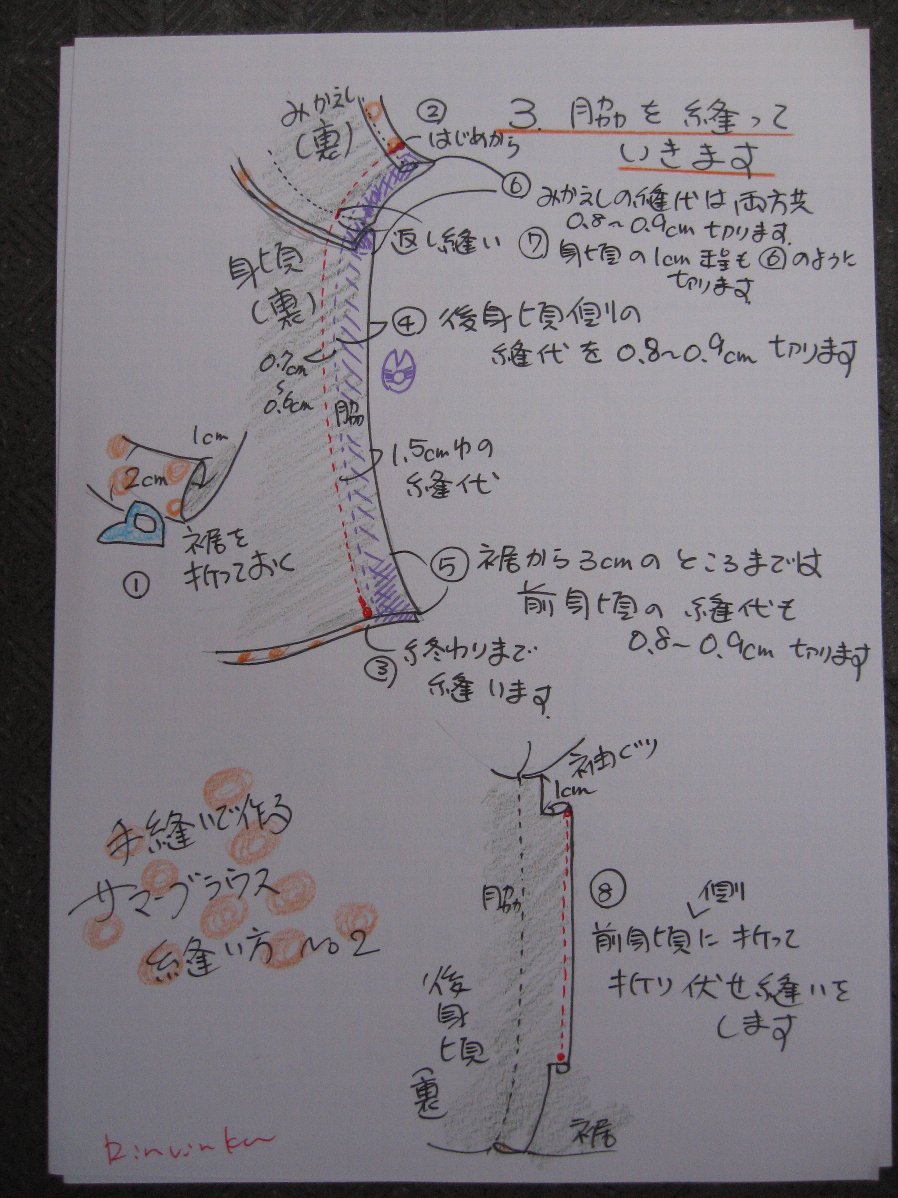 3. 脇を縫って
いきます
みかえし
(裏)
②
はじめから
⑥
みかえしの縫代は両方共
0.8〜0.9cm切ります.
返し縫い
⑦
身頃の1cm程も⑥のように
切ります
身頃
(裏)
④
後身頃側の
縫代を0.8〜0.9cm切ります
0.7cm
〜
0.6cm
脇
1.5cm巾の
縫代
1cm
2cm
裾を
折っておく
①
⑤
裾から3cmのところまでは
前身頃の縫代も
0.8〜0.9cm切ります
③
終わりまで
縫います.
手縫いで作る
サマーブラウス
縫い方 No2
袖ぐり
1cm
脇
⑧
側
前身頃に折って
折り伏せ縫いを
します
後身頃
(裏)
裾
Rinrinku